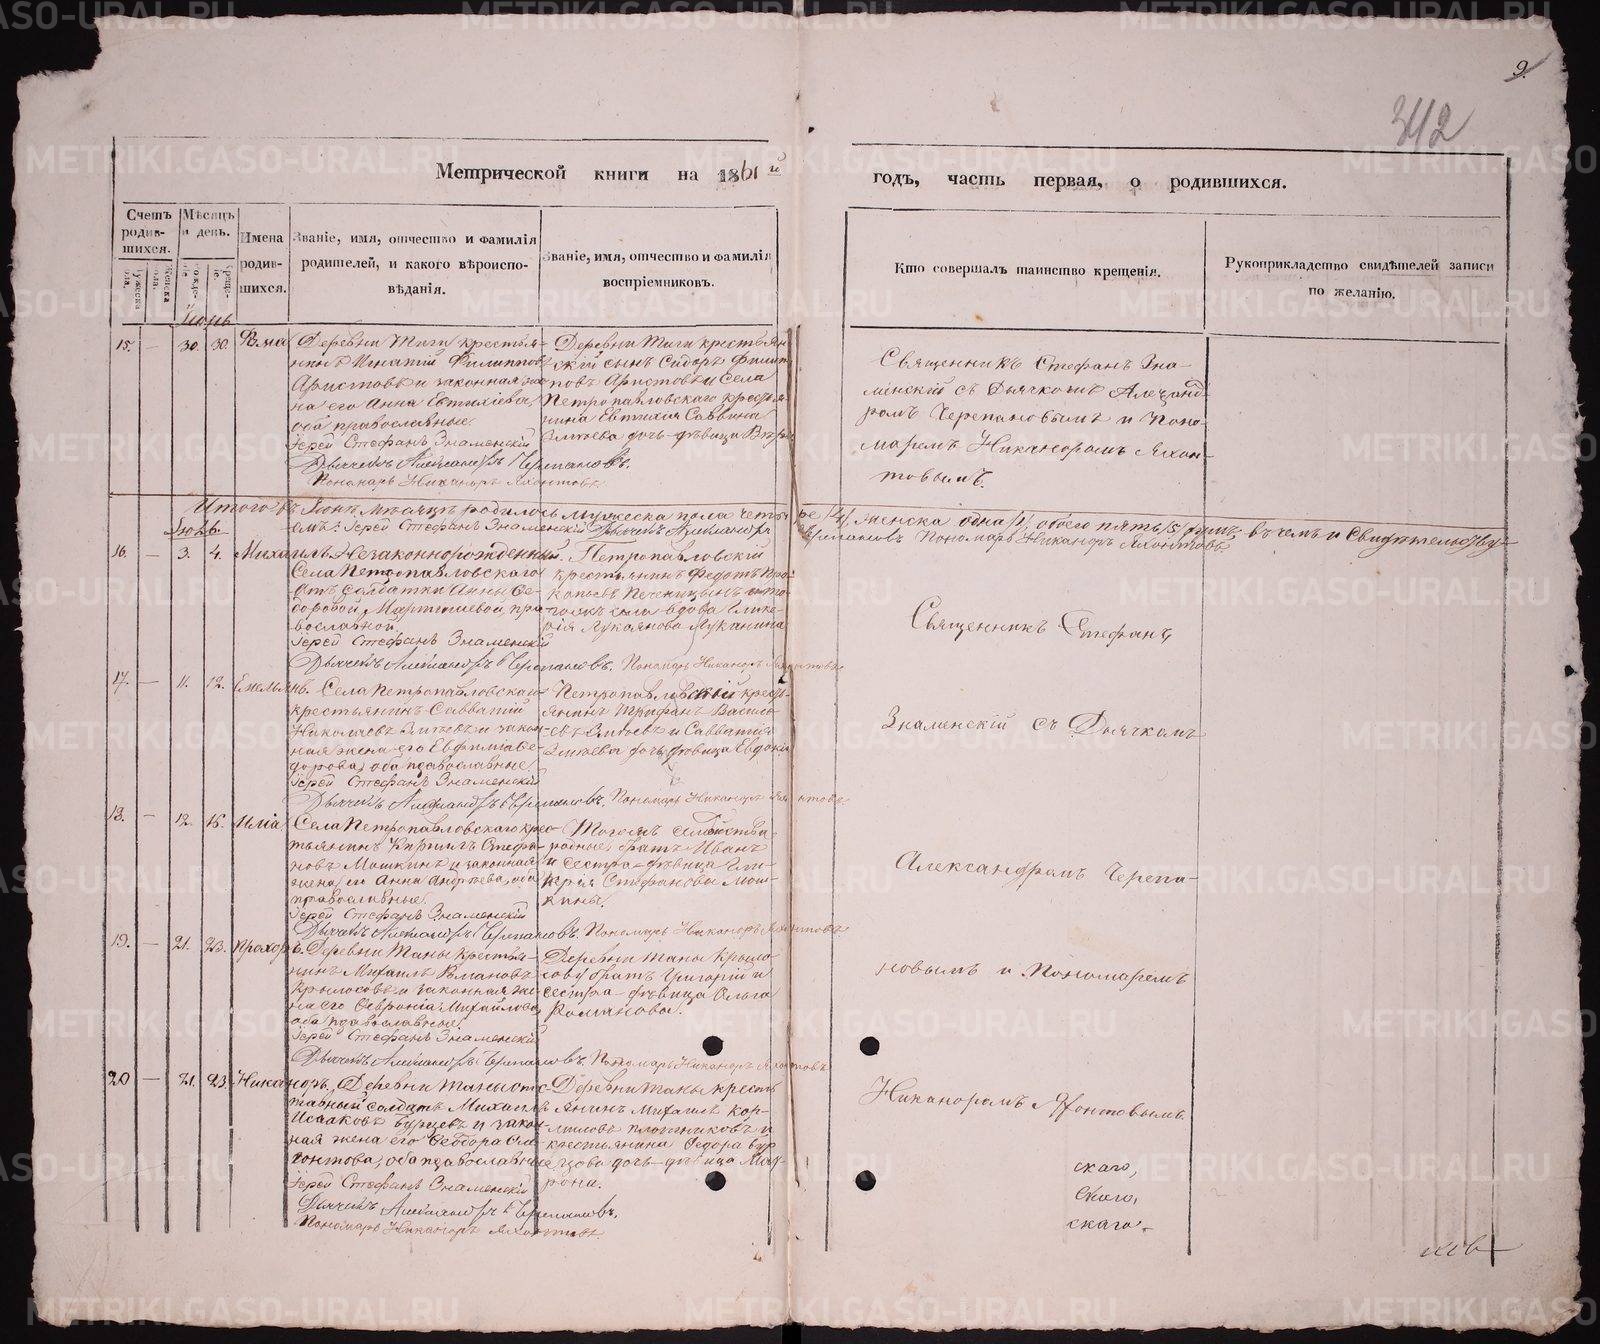 9.
342
Метрической книги на 1861й годъ, часть первая, о родившихся.
Счетъ родившихся.
Мѣсяцъ и день.
Имена родившихся.
Званіе, имя, отчество и фамилія родителей, и какого вѣроисповѣданія.
Званіе, имя, отчество и фамилія воспріемниковъ.
Кто совершалъ таинство крещенія.
Рукоприкладство свидѣтелей записи по желанію.
Іюнь
15. — 30. 30. Ѳома
Деревни Тиги крестья-
нинъ Игнатій Филипповъ
Аристовъ и законная же-
на его Анна Евтихіева,
оба православные.
Іерей Стефанъ Знаменскій
Дьячекъ Александръ Черепановъ.
Пономарь Никаноръ Яхонтовъ.
Деревни Тиги крестьян-
скій сынъ Сидоръ Филип-
повъ Аристовъ и Села
Петропавловскаго крестья-
нина Евтихія Саввина
дочь дѣвица
Священникъ Стефанъ Зна-
менскій съ Дьячкомъ Александ-
ромъ Черепановымъ и Поно-
маремъ Никаноромъ Яхон-
товымъ.
Итого въ Іюнѣ мѣсяцѣ родилось мужеска пола четыре /4/, женска одна /1/, обоего пять /5/ душъ; въ чемъ и свидѣтельству-
емъ: Іерей Стефанъ Знаменскій Дьячекъ Александръ Черепановъ Пономарь Никаноръ Яхонтовъ
Іюль.
16. — 3. 4. Михаилъ
Незаконнорожденный
Села Петропавловскаго
отъ солдатки Анны Ѳе-
доровой, пра-
вославной.
Іерей Стефанъ Знаменскій
Дьячекъ Александръ Черепановъ. Пономарь Никаноръ Яхонтовъ
Петропавловскій
крестьянинъ Федотъ Про-
вдова Глике-
рія Лукоянова Луканина
Священникъ Стефанъ
17. — 11. 12. Емельянъ.
Села Петропавловскаго
крестьянинъ Савватій
Николаевъ и закон-
ная жена его Евфимія Ѳе-
дорова, оба православные
Іерей Стефанъ Знаменскій
Дьячекъ Александръ Черепановъ. Пономарь Никаноръ Яхонтовъ
Петропавловскій крест-
янинъ Трифанъ Василь-
евъ и Савватія
дочь дѣвица Евдокія
Знаменскій съ Дьячкомъ
18. — 12. 16. Илія
Села Петропавловскаго крес-
тьянинъ Кирилъ Стефа-
новъ Мошкинъ и законная
жена его Анна Андреева, оба
православные.
Іерей Стефанъ Знаменскій
Дьячекъ Александръ Черепановъ. Пономарь Никаноръ Яхонтовъ
Тогожъ семейства
родные: братъ Иванъ
и сестра дѣвица Гли-
керія Стефановы Мош-
кины.
Александромъ Черепа-
19. — 21. 23. Прохоръ.
Деревни Таны крестья-
нинъ Михаилъ Романовъ
Крылосовъ и законная же-
на его Ѳевронія Михайлова,
оба православные.
Іерей Стефанъ Знаменскій
Дьячекъ Александръ Черепановъ. Пономарь Никаноръ Яхонтовъ
Деревни Таны Крыло-
сову братъ Григорій и
сестра дѣвица Ольга
Романовы.
новымъ и Пономаремъ
20 — 21. 23. Никаноръ.
Деревни Таны отс-
тавный солдатъ Михаилъ
Исааковъ Бурцевъ и закон-
ная жена его Ѳеодора
оба православные
Іерей Стефанъ Знаменскій
Дьячекъ Александръ Черепановъ.
Пономарь Никаноръ Яхонтовъ.
Деревни Таны кресть
янинъ Михаилъ Кор-
ниловъ Плотниковъ и
крестьянина Ѳедора Бур-
цова дочь дѣвица Мат-
рона.
Никаноромъ Яхонтовымъ.
скаго,
скаго,
скаго.